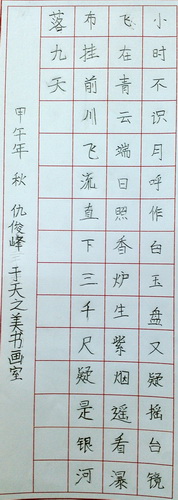 小时不识月呼作白玉盘又疑摇台镜
飞在青云端日照香炉生紫烟遥看瀑
布挂前川飞流直下三千尺疑是银河
落九天
甲午年 秋 仇俊峰三于天之美书画室